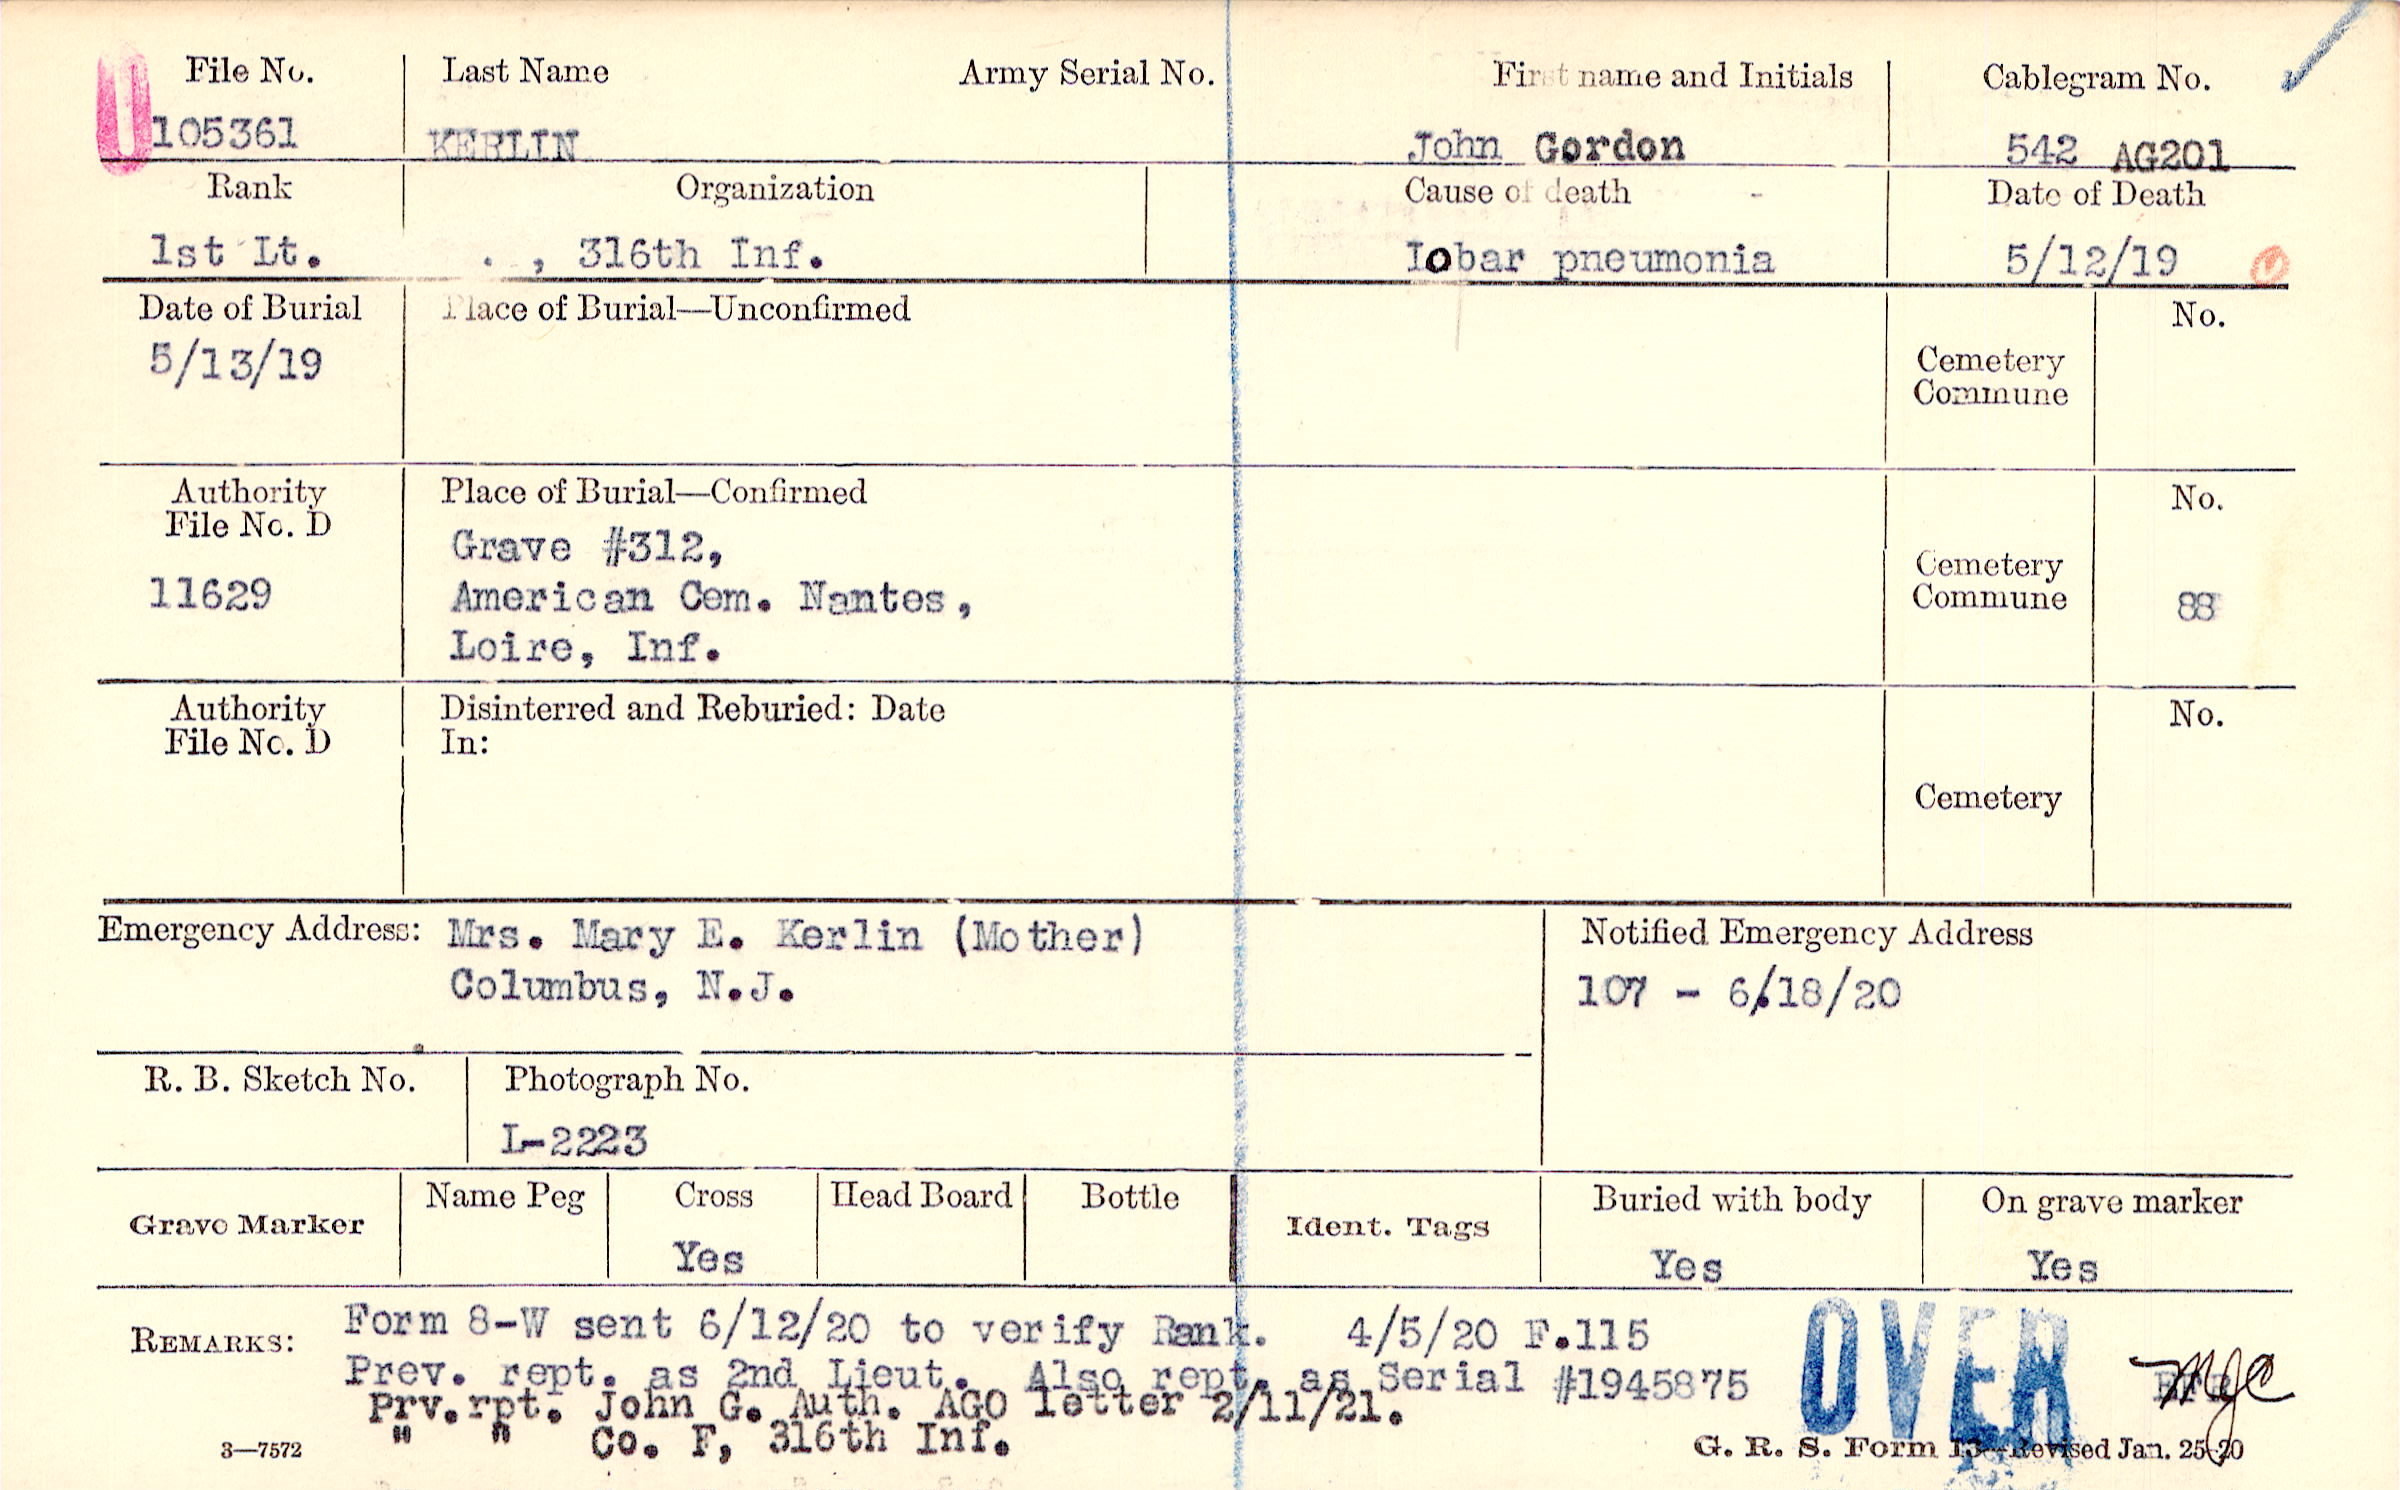 File No. Last Name Army Serial No. First name and Initials Cablegram No.
105361 KERLIN John Gordon 542 AG201
Rank Organization Cause of death - Date of Death
1st Lt. . , 316th Inf. Iobar pneumonia 5/12/19
Date of Burial Place of Burial—Unconfirmed No.
5/13/19
Cemetery
Commune
Authority Place of Burial—Confirmed No.
File No. D
Grave #312,
Cemetery
11629 American Cem. Nantes, Commune 88
Loire, Inf.
Authority Disinterred and Reburied: Date No.
File No. D In:
Cemetery
Emergency Address: Mrs. Mary E. Kerlin (Mother) Notified Emergency Address
Columbus, N.J. 107 - 6/18/20
R. B. Sketch No. Photograph No.
L-2223
Grave Marker Name Peg Cross Head Board Bottle Ident. Tags Buried with body On grave marker
Yes Yes Yes
REMARKS: Form 8-W sent 6/12/20 to verify Rank. 4/5/20 F.115
Prev. rept. as 2nd Lieut. Also rept. as Serial #1945875
Prv.rpt. John G. Auth. AGO letter 2/11/21.
" " Co. F, 316th Inf.
OVER
3—7572 G. R. S. Form 13—Revised Jan. 25-20